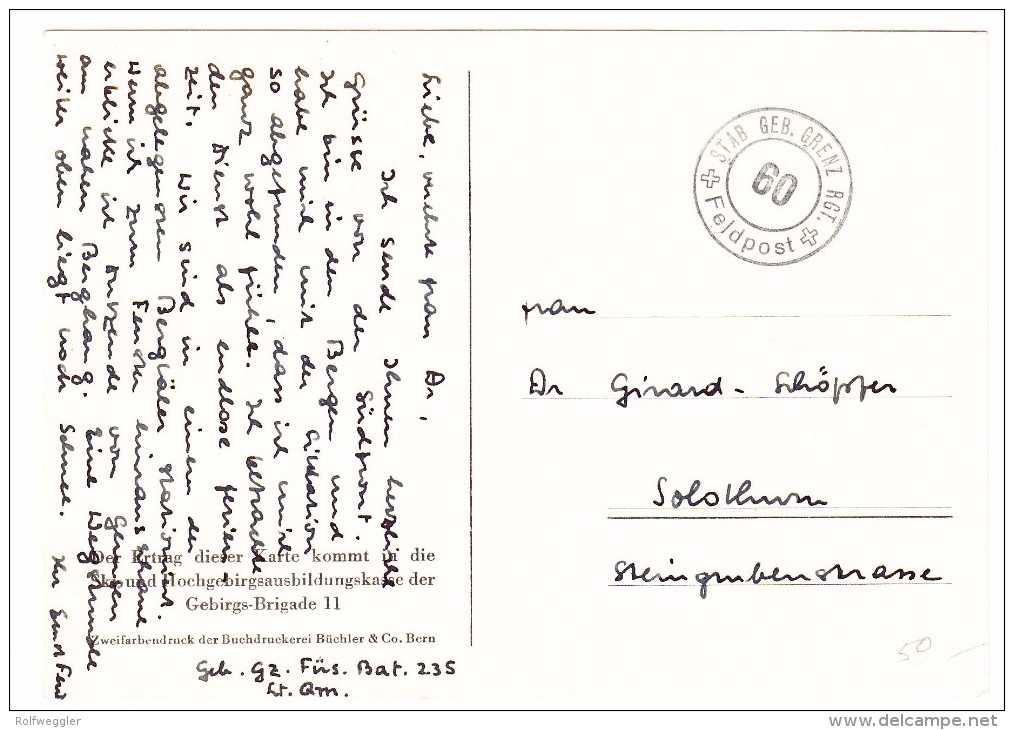 Liebe, verehrte Frau Dr,
Ich sende Ihnen herzliche
Grüsse von der Südfront.
Ich bin in den Bergen und
habe mich mit der Situation
so abgefunden, dass ich mich
ganz wohl fühle. Ich betrachte
den Dienst als endlose Ferien
zeit. Wir sind in einem der
abgelegensten Bergtäler stationiert.
Wenn ich zum Fenster hinaus schaue
erblicke ich Dutzende von Gemsen
am nahen Berghang. Eine Wegstunde
weiter oben liegt noch Schnee. Ihr
Der Ertrag dieser Karte kommt in die
Ski- und Hochgebirgsausbildungskasse der
Gebirgs-Brigade 11
Zweifarbendruck der Buchdruckerei Büchler & Co. Bern
Geb. Gz. Füs. Bat. 235
Lt. Qm.
STAB GEB. GRENZ RGT.
60
Feldpost
Frau
Dr Girard - Schöpfer
Solothurn
Steingrubenstrasse
50
Rolfweggler
delcampe.net